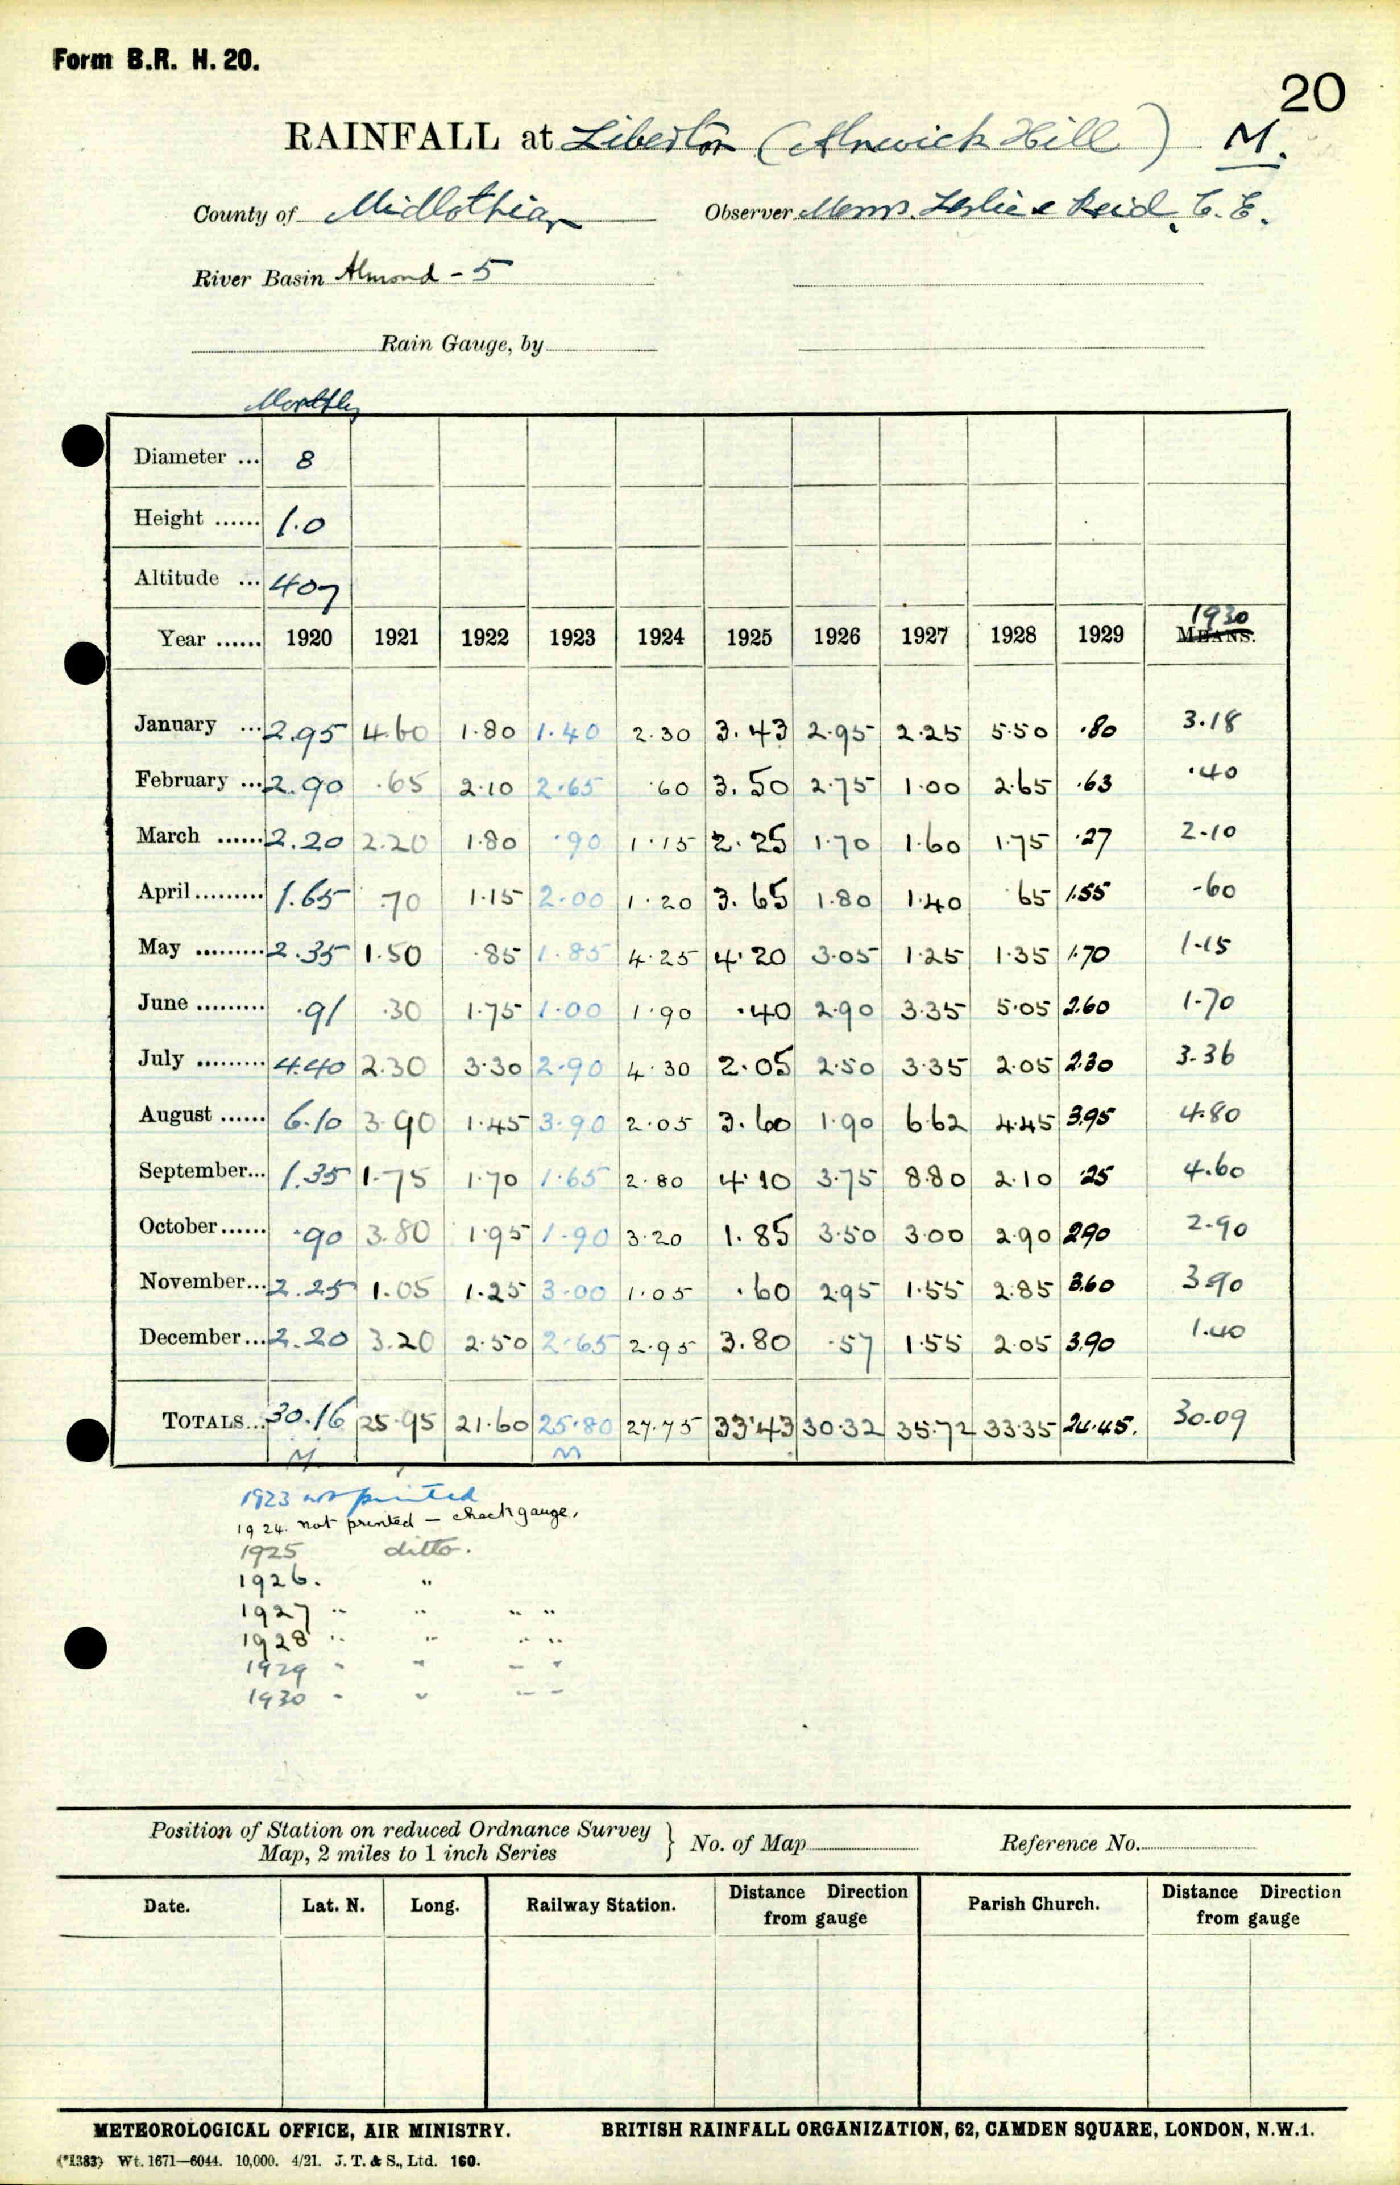 Form B.R. H. 20.
20
RAINFALL at Liberton (Alnwick Hill) M.
County of Midlothian Observer Messrs. Leslie & Reid, C. E.
River Basin Almond - 5
Rain Gauge, by
Monthly
Diameter ... 8
Height ...... 1.0
Altitude ... 407
1930
Year ...... 1920 1921 1922 1923 1924 1925 1926 1927 1928 1929 MEANS.
January ... 2.95 4.60 1.80 1.40 2.30 3.43 2.95 2.25 5.50 .80 3.18
February ... 2.90 .65 2.10 2.65 .60 3.50 2.75 1.00 2.65 .63 .40
March ...... 2.20 2.20 1.80 .90 1.15 2.25 1.70 1.60 1.75 .27 2.10
April......... 1.65 .70 1.15 2.00 1.20 3.65 1.80 1.40 65 1.55 .60
May ......... 2.35 1.50 .85 1.85 4.25 4.20 3.05 1.25 1.35 1.70 1.15
June ......... .91 .30 1.75 1.00 1.90 .40 2.90 3.35 5.05 2.60 1.70
July ......... 4.40 2.30 3.30 2.90 4.30 2.05 2.50 3.35 2.05 2.30 3.36
August ...... 6.10 3.90 1.45 3.90 2.05 3.60 1.90 6.62 4.45 3.95 4.80
September... 1.35 1.75 1.70 1.65 2.80 4.10 3.75 8.80 2.10 .25 4.60
October...... .90 3.80 1.95 1.90 3.20 1.85 3.50 3.00 2.90 2.90 2.90
November... 2.25 1.05 1.25 3.00 1.05 .60 2.95 1.55 2.85 3.60 3.90
December... 2.20 3.20 2.50 2.65 2.95 3.80 .57 1.55 2.05 3.90 1.40
TOTALS... 30.16 25.95 21.60 25.80 27.75 33.43 30.32 35.72 33.35 24.45. 30.09
M. M
1923 not printed
1924. not printed — check gauge.
1925 ditto.
1926. "
1927 " " " "
1928 " " " "
1929 " " " "
1930 " " " "
Position of Station on reduced Ordnance Survey
Map, 2 miles to 1 inch Series } No. of Map Reference No.
Date. Lat. N. Long. Railway Station. Distance Direction from gauge Parish Church. Distance Direction from gauge
METEOROLOGICAL OFFICE, AIR MINISTRY. BRITISH RAINFALL ORGANIZATION, 62, CAMDEN SQUARE, LONDON, N.W.1.
(*1383) Wt. 1671—6044. 10,000. 4/21. J. T. & S., Ltd. 160.